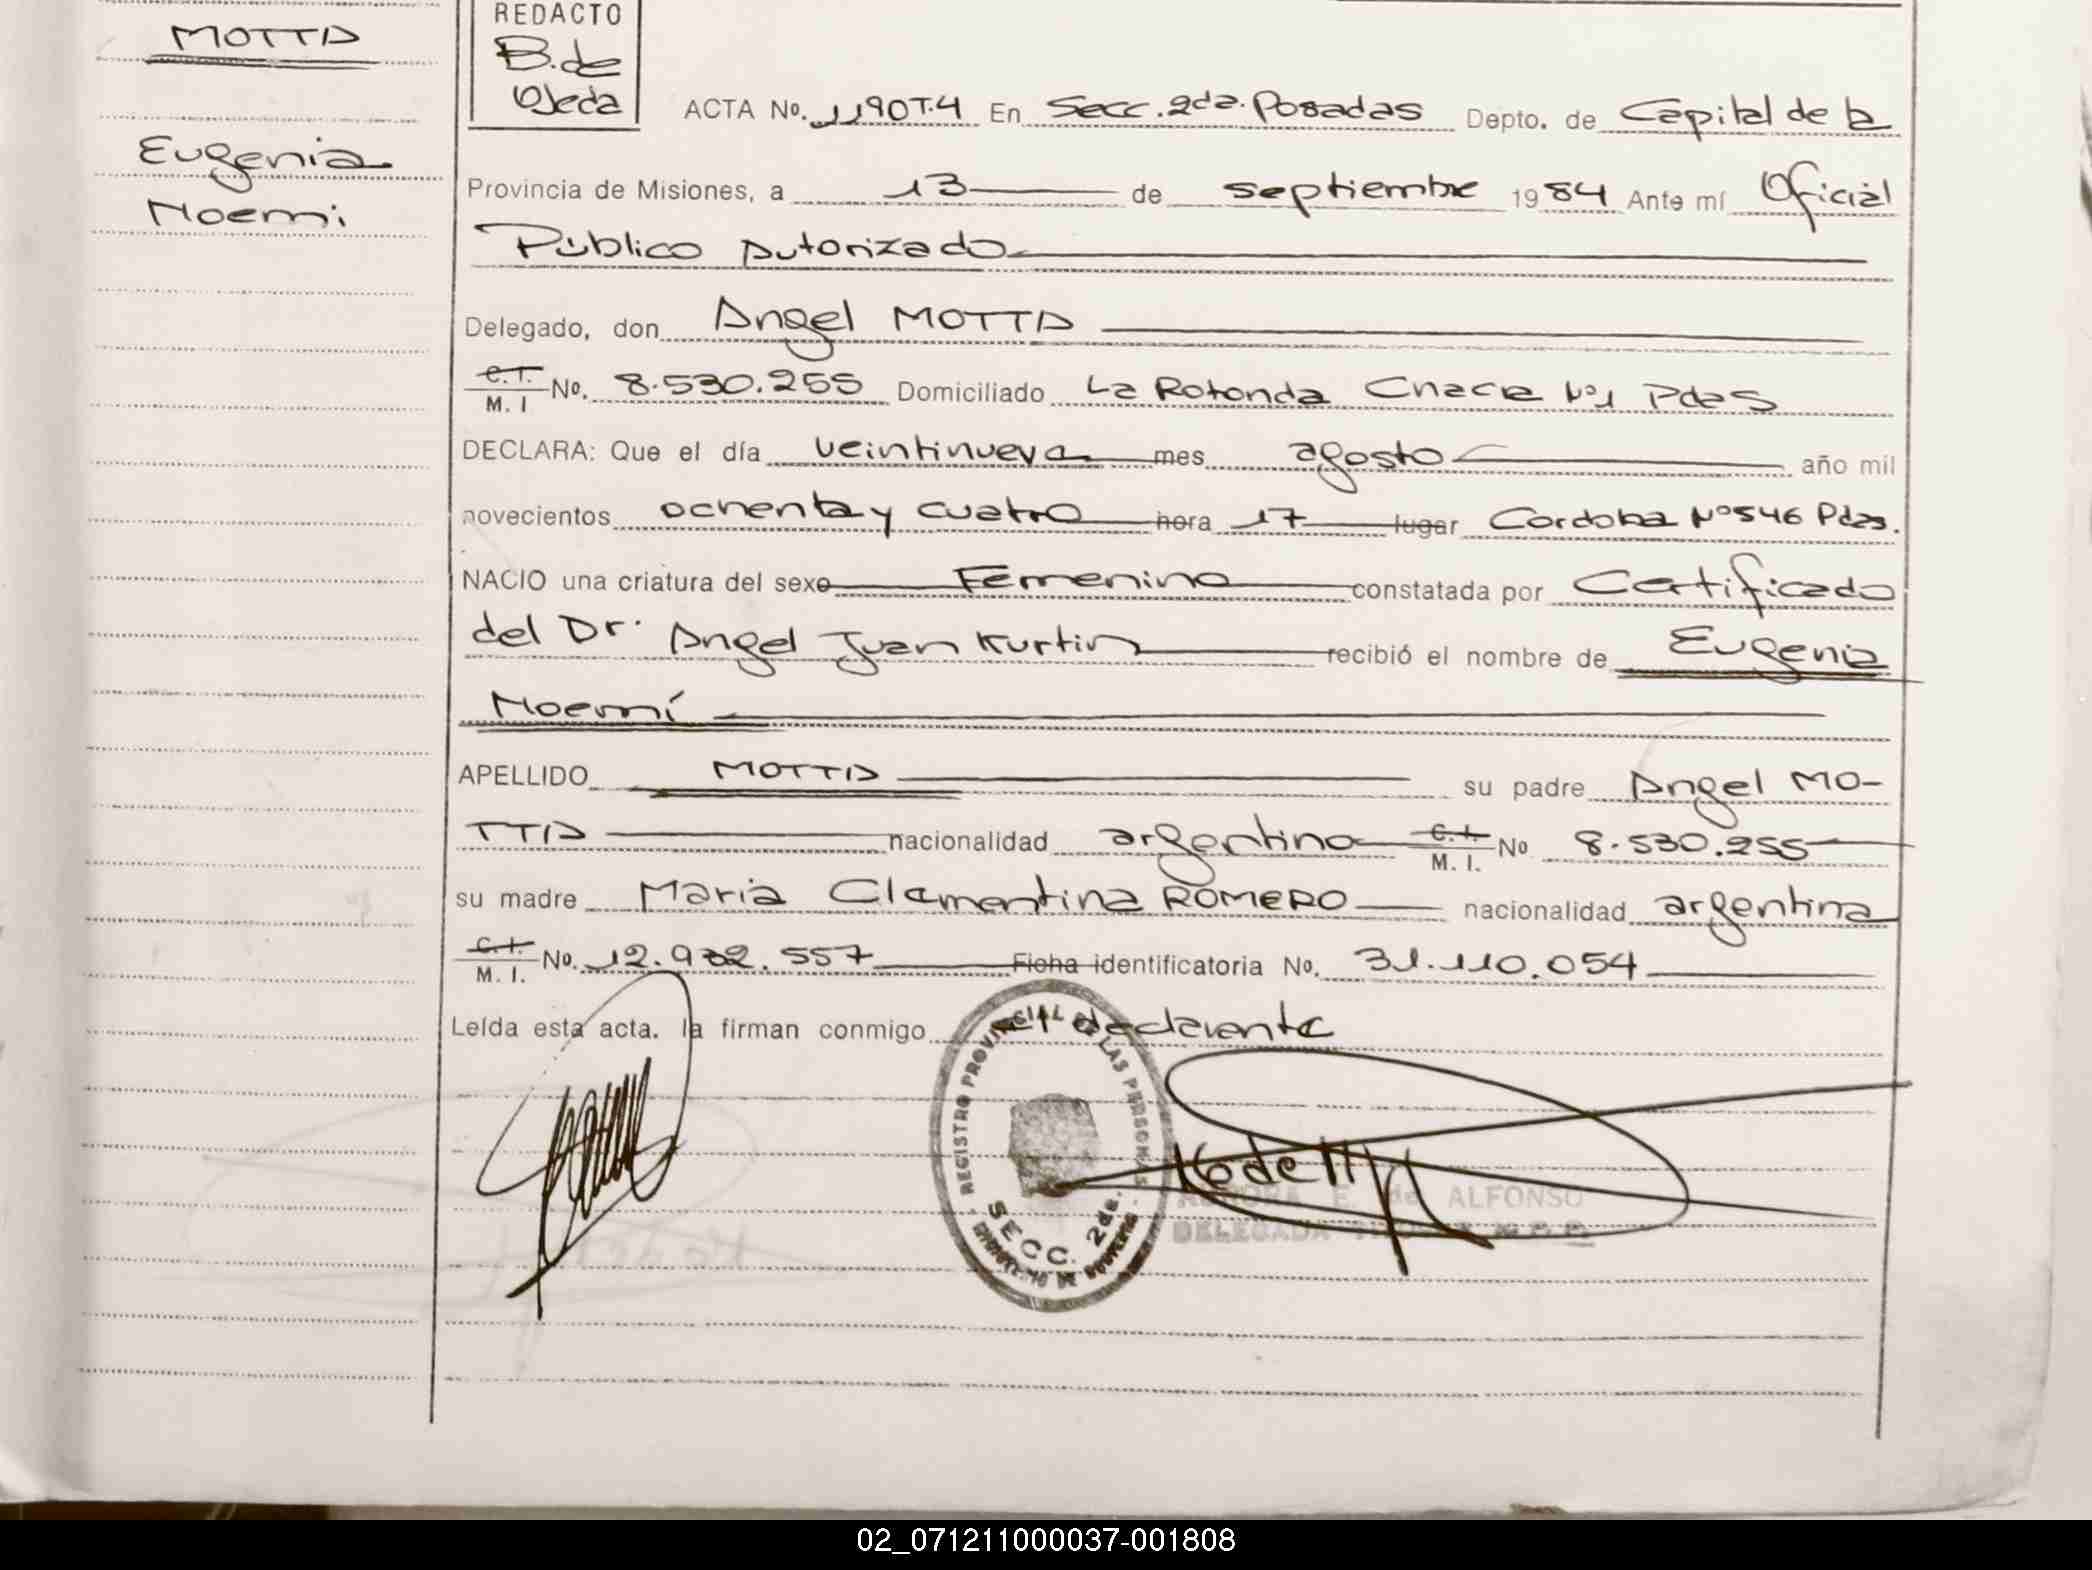 MOTTA
Eugenia
Noemi
REDACTO
B. de
Ojeda
ACTA No. 1190T.4 En Secc. 2da. Posadas Depto. de Capital de la
Provincia de Misiones, a 13 de septiembre 1984 Ante mí Oficial
Público Autorizado
Delegado, don Angel MOTTA
C.I. M. I No. 8.530.255 Domiciliado La Rotonda Chacra Nº1 Pdas
DECLARA: Que el día veintinueve mes agosto año mil
novecientos ochenta y cuatro hora 17 lugar Cordoba Nº546 Pdas.
NACIO una criatura del sexo Femenino constatada por Certificado
del Dr. Angel Juan Kurtin recibió el nombre de Eugenia
Noemí
APELLIDO MOTTA su padre Angel MO-
TTA nacionalidad argentino C.I. M. I. No 8.530.255
su madre Maria Clementina ROMERO nacionalidad argentina
C.I. M. I. No. 12.932.557 Ficha identificatoria No. 31.110.054
Leída esta acta. la firman conmigo el declarante
REGISTRO PROVINCIAL DE LAS PERSONAS
SECC. 2da.
MINISTERIO DE GOBIERNO
E. de ALFONSO
DELEGADA
02_071211000037-001808